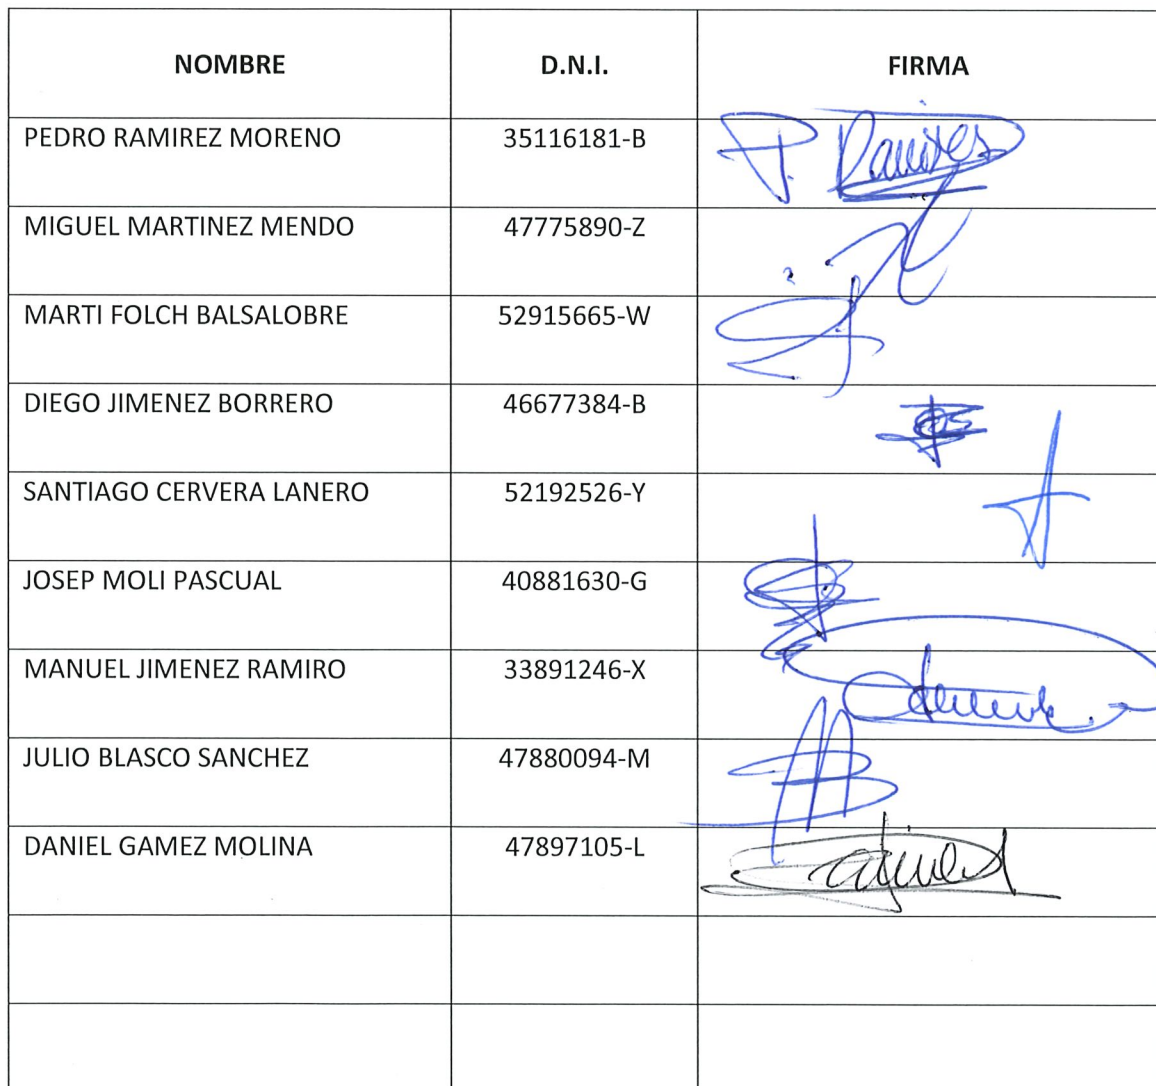 NOMBRE D.N.I. FIRMA
PEDRO RAMIREZ MORENO 35116181-B P. Ramires
MIGUEL MARTINEZ MENDO 47775890-Z
MARTI FOLCH BALSALOBRE 52915665-W
DIEGO JIMENEZ BORRERO 46677384-B
SANTIAGO CERVERA LANERO 52192526-Y
JOSEP MOLI PASCUAL 40881630-G
MANUEL JIMENEZ RAMIRO 33891246-X
JULIO BLASCO SANCHEZ 47880094-M
DANIEL GAMEZ MOLINA 47897105-L